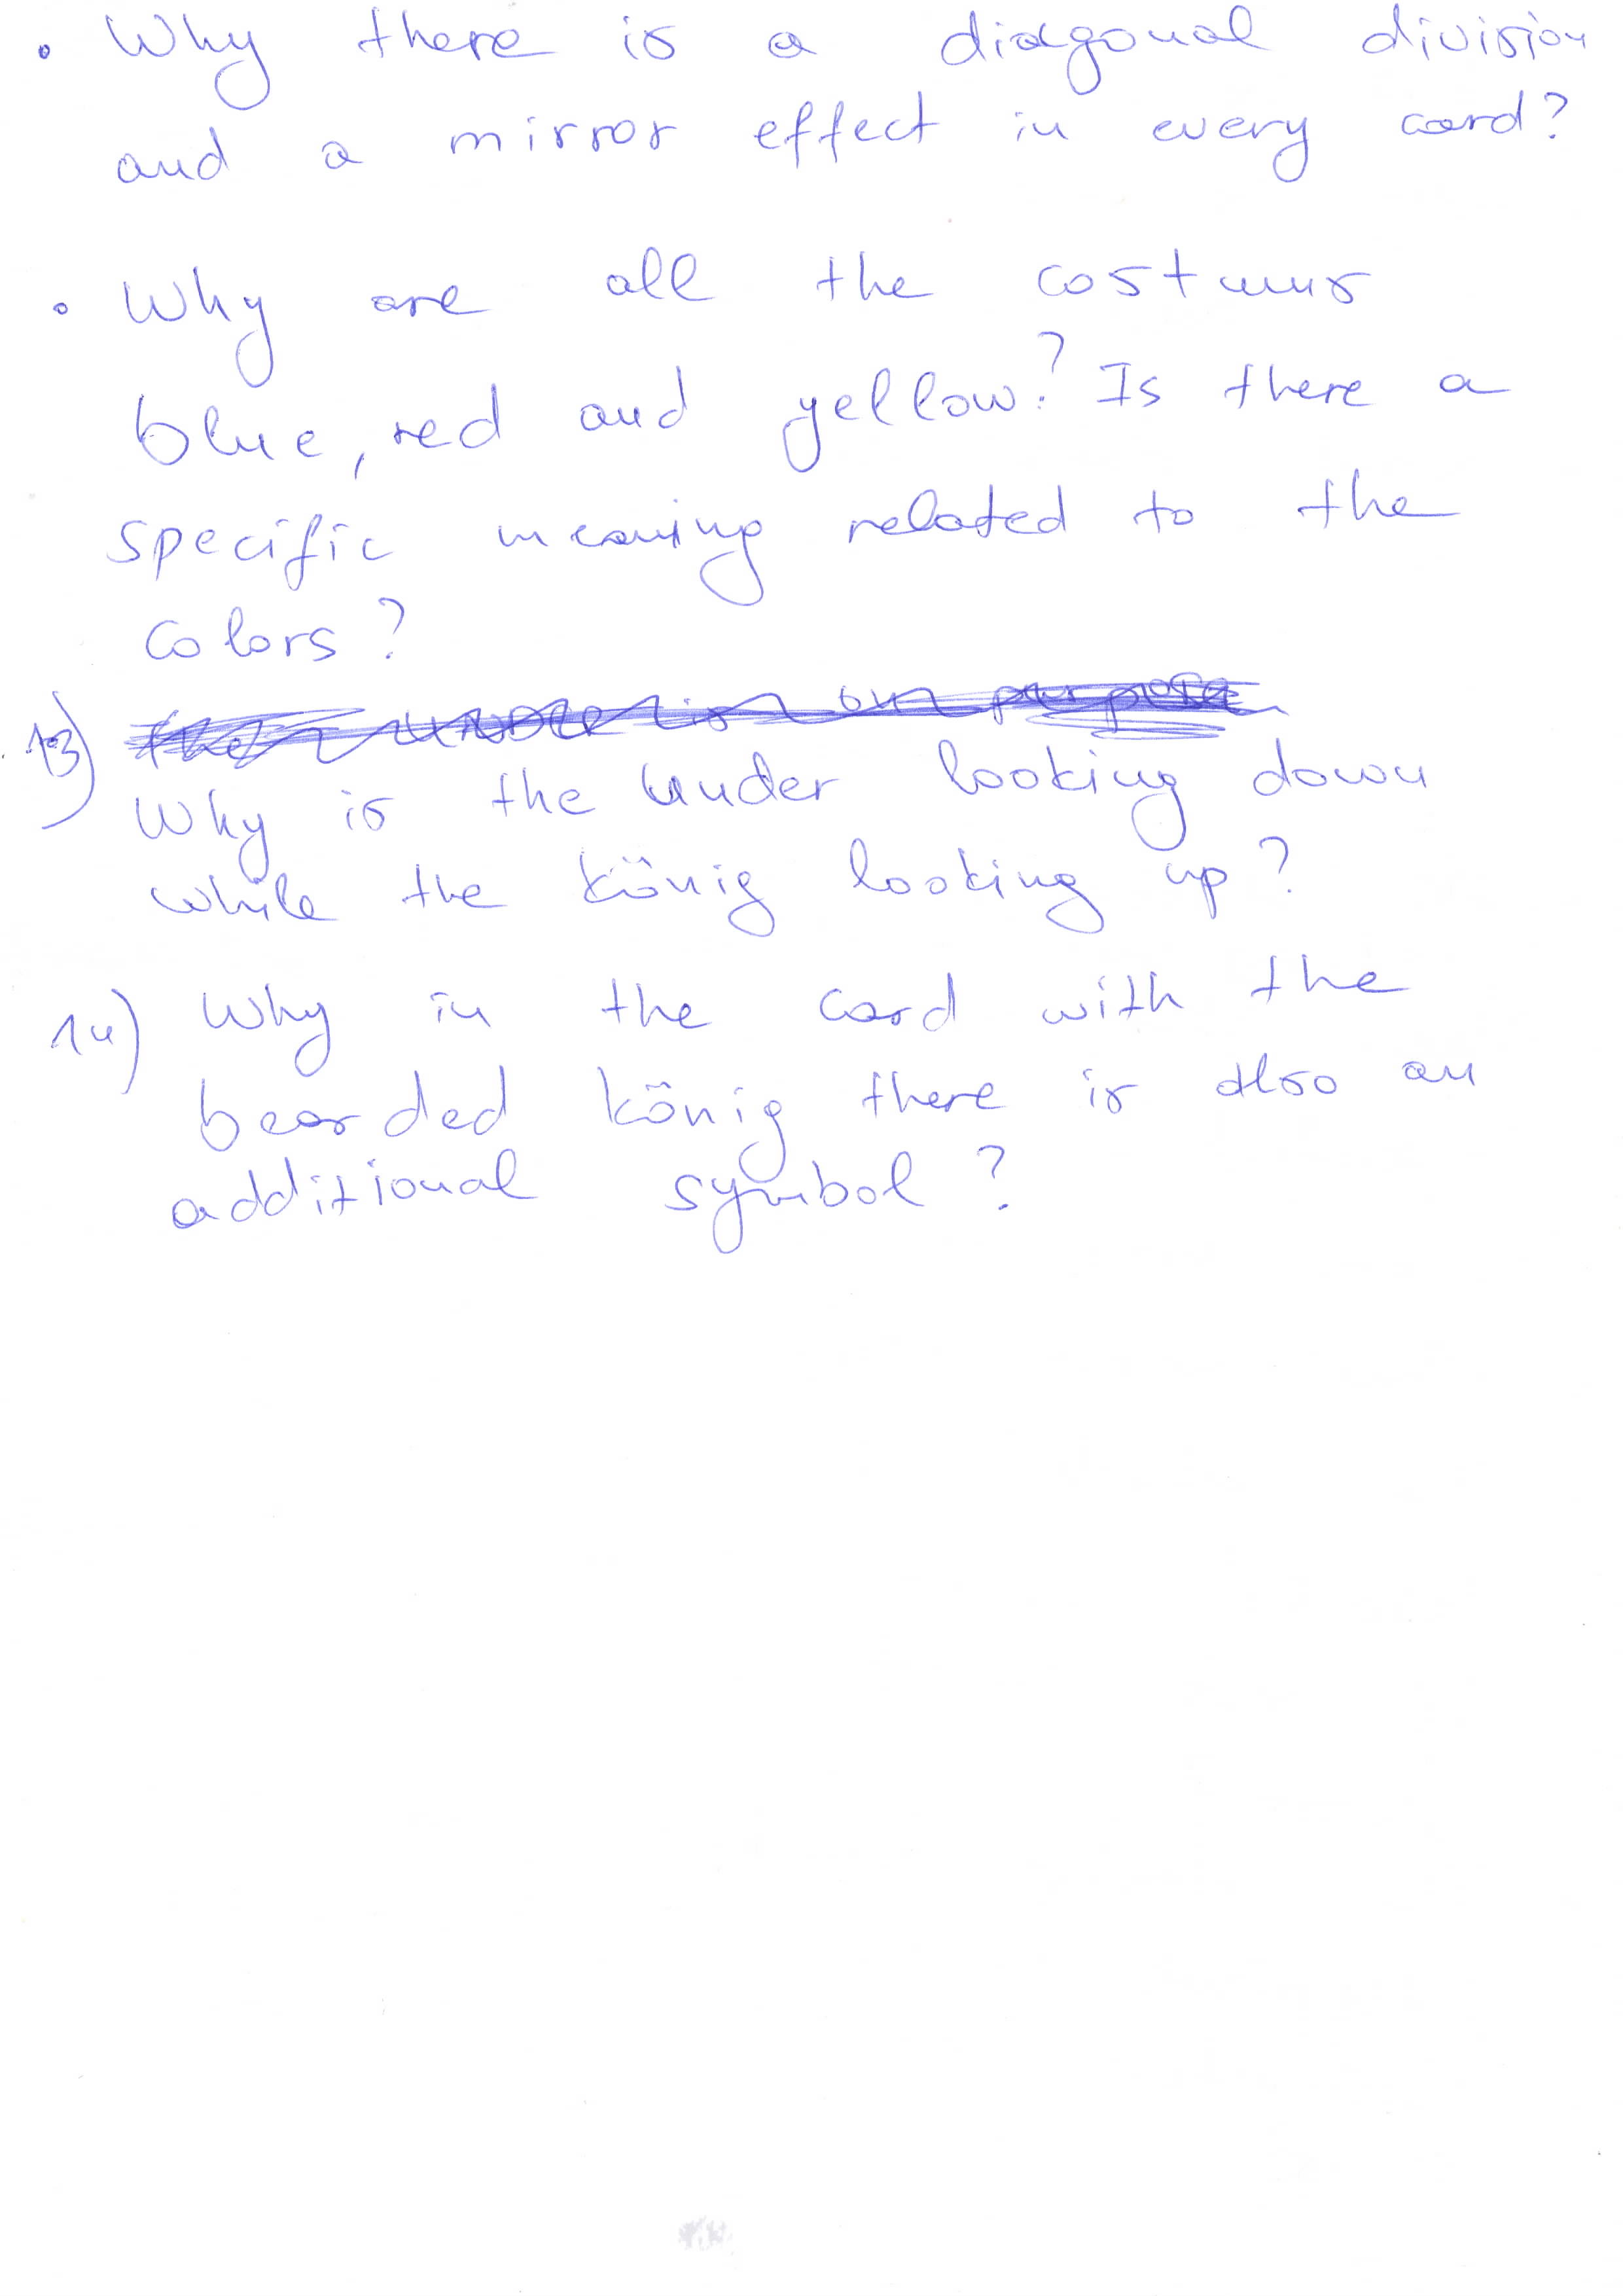 • Why there is a diagonal division
and a mirror effect in every card?
• Why are all the costums
blue, red and yellow? Is there a
specific meaning related to the
colors?
13)
Why is the Under looking down
while the könig looking up?
14) Why in the card with the
bearded könig there is also an
additional symbol?